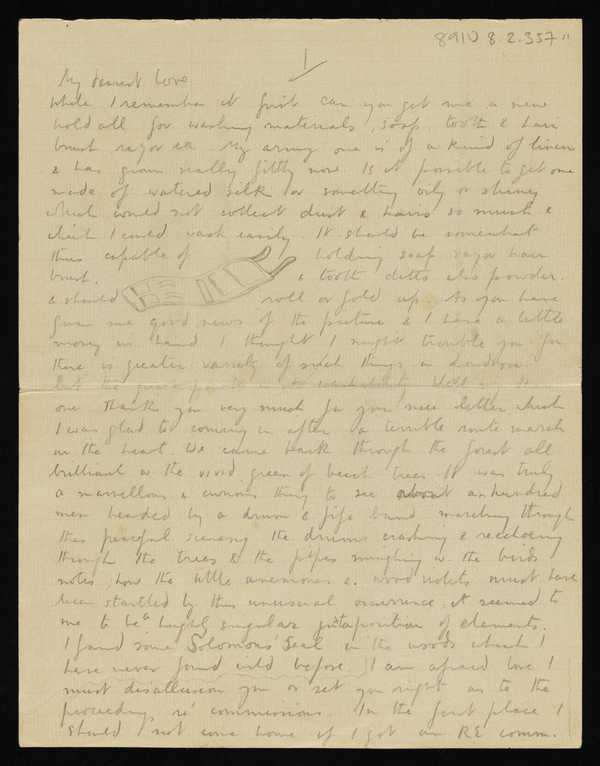 8910.8.2.357
1
My dearest Love
While I remember it first can you get me a new
hold all for washing materials, soap, tooth & hair
brush razor etc. My army one is of a kind of linen
& has grown really filthy now. Is it possible to get one
made of watered silk or something oily or shiney
which would not collect dust & hairs so much &
which I could wash easily. It should be somewhat
thus capable of holding soap razor hair
brush. & tooth ditto also powder.
& should roll or fold up. As you have
given me good news of the picture & I have a little
money in hand I thought I might trouble you for
there is greater variety of such things in London
but the
one thank you very much for your nice letter which
I was glad to coming in after a terrible route march
in the heat. We came back through the forest all
brilliant w the vivid green of beech trees. It was truly
a marvellous & curious thing to see about an hundred
men headed by a drum & fife band marching through
this peaceful scenery the drums crashing & reechoing
through the trees & the fifes mingling w the birds
notes, how the little anemones & wood violets must have
been startled by this unusual occurrence, it seemed to
me to be a highly singular juxtaposition of elements.
I found some Solomons' Seal in the woods which I
have never found wild before. I am afraid love I
must disallusion you or set you right as to the
proceedings re' commissions. In the first place I
should not come home if I got an RE comm.